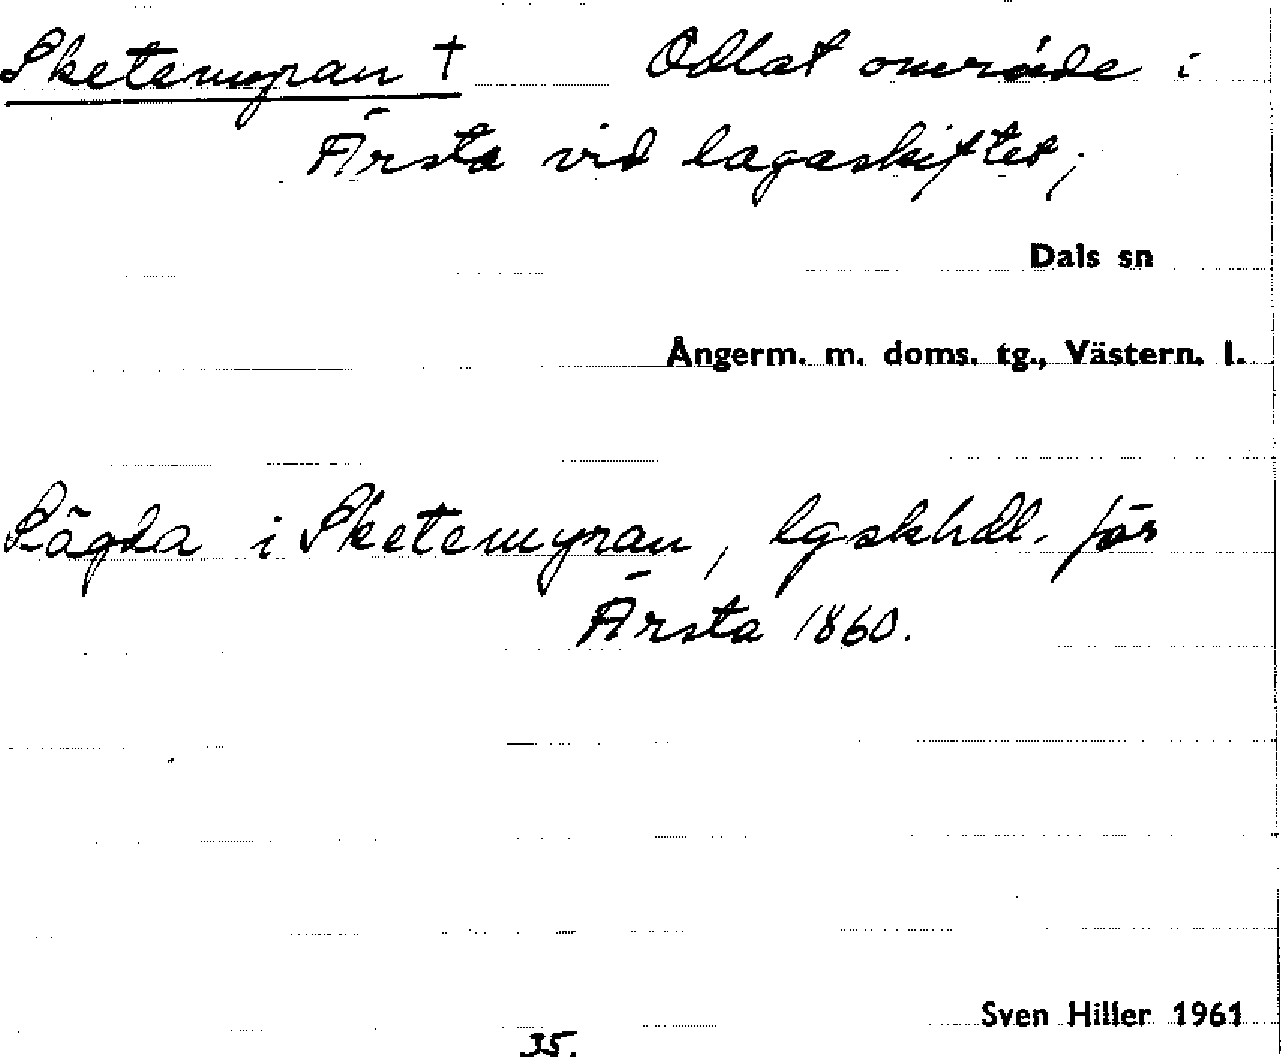 Sketemyran †   Odlat område i
Ärsta vid lagaskiftet;
Dals sn
Ångerm. m. doms. tg., Västern. l.
Lägda i Sketemyran, lgskhdl. för
Ärsta 1860.
Sven Hiller 1961
35.